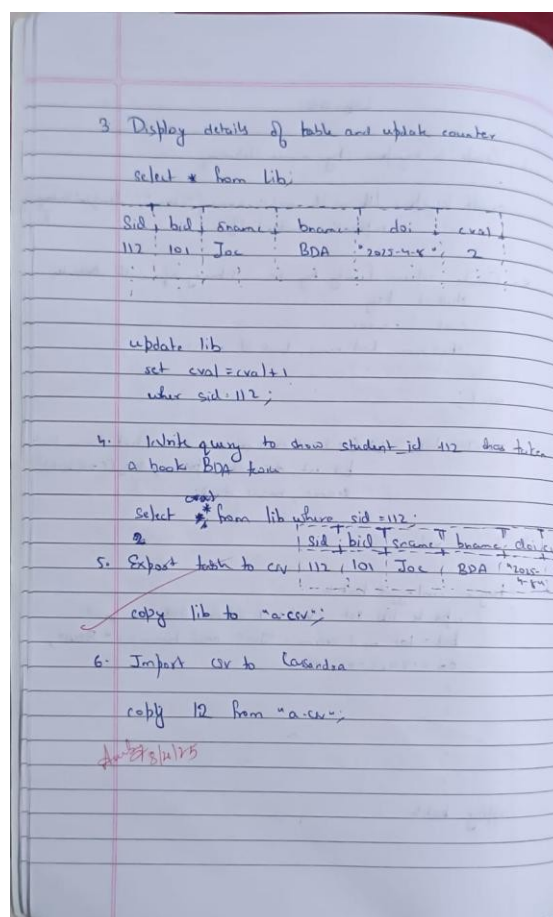 3 Display details of table and update counter
select * from lib;
Sid bid sname bname doi cval
112 101 Joe BDA "2025-4-8" 2
update lib
set cval = cval+1
wher sid = 112;
4. Write query to show student_id 112 has taken
a book BDA from
cval
select * from lib where sid = 112;
2
sid bid sname bname doi c
5. Export table to csv 112 101 Joe BDA "2025-
4-8"
copy lib to "a.csv";
6. Import csv to Cassandra
copy l2 from "a.csv";
8/4/25